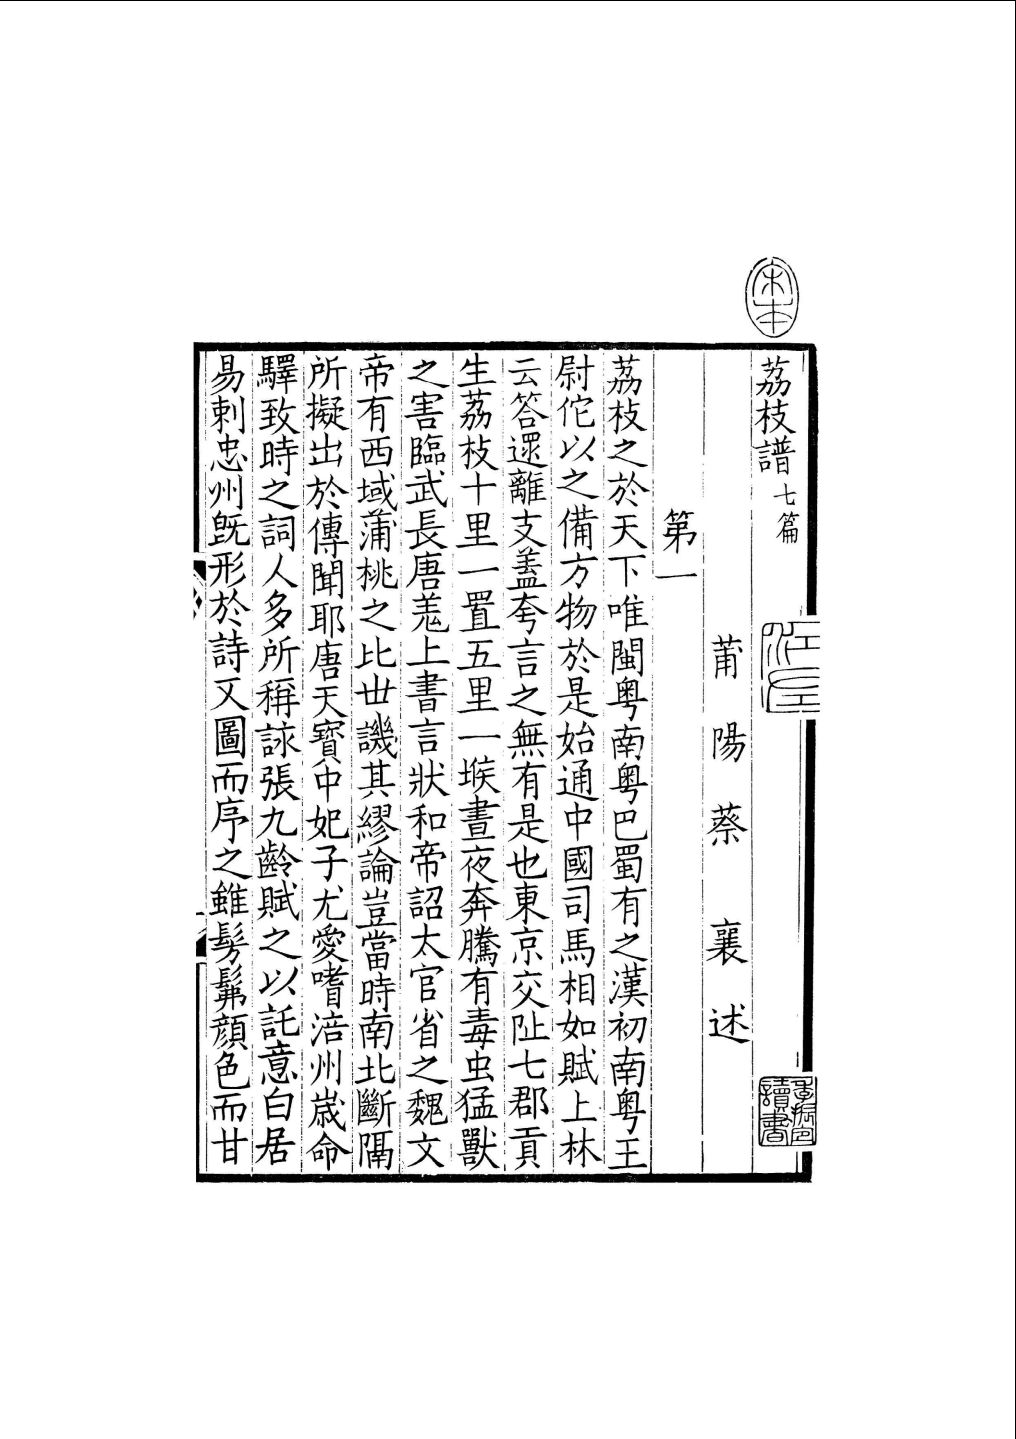 荔枝譜七篇
莆陽蔡襄述
第一
荔枝之於天下唯閩粤南粤巴蜀有之漢初南粤王
尉佗以之備方物於是始通中國司馬相如賦上林
云答遝離支蓋夸言之無有是也東京交阯七郡貢
生荔枝十里一置五里一堠晝夜奔騰有毒虫猛獸
之害臨武長唐羌上書言狀和帝詔太官省之魏文
帝有西域蒲桃之比世譏其繆論豈當時南北斷隔
所擬出於傳聞耶唐天寶中妃子尤愛嗜涪州歲命
驛致時之詞人多所稱詠張九齡賦之以託意白居
易刺忠州既形於詩又圖而序之雖髣髴顔色而甘